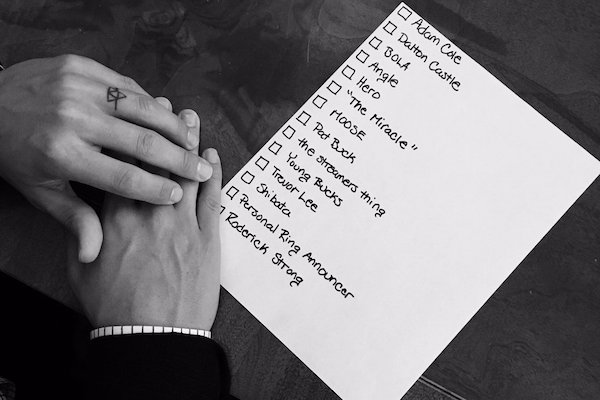 Adam Cole
Dalton Castle
BOLA
Angle
Hero
"The Miracle"
MOOSE
Pat Buck
the streamers thing
Young Bucks
Trevor Lee
Shibata
Personal Ring Announcer
Roderick Strong